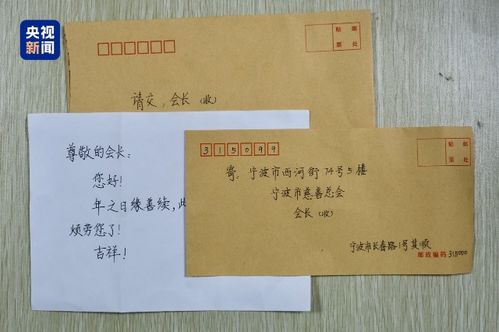 央视
新闻
贴 邮
票 处
请交，会长（收）
尊敬的会长：
您好！
年之日缘善续，此
烦劳您了！
吉祥！
315099
贴 邮
票 处
寄：宁波市西河街74号5楼
宁波市慈善总会
会长（收）
宁波市长春路1号其顺
邮政编码 315000